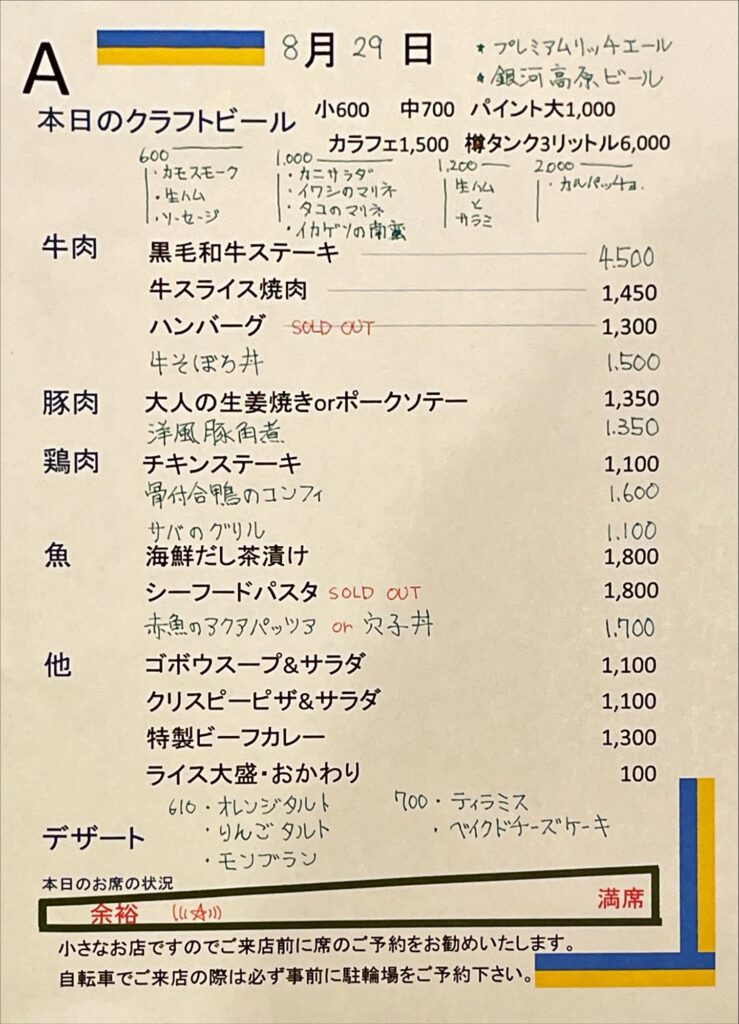 A
8月29日
* プレミアムリッチエール
* 銀河高原ビール
本日のクラフトビール 小600 中700 パイント大1,000
カラフェ1,500 樽タンク3リットル6,000
600
・カモスモーク
・生ハム
・ソーセージ
1,000
・カニサラダ
・イワシのマリネ
・タコのマリネ
・イカゲソの南蛮
1,200
生ハム
と
サラミ
2,000
・カルパッチョ.
牛肉 黒毛和牛ステーキ 4.500
牛スライス焼肉 1,450
ハンバーグ SOLD OUT 1,300
牛そぼろ丼 1.500
豚肉 大人の生姜焼きorポークソテー 1,350
洋風豚角煮 1.350
鶏肉 チキンステーキ 1,100
骨付合鴨のコンフィ 1.600
サバのグリル 1.100
魚 海鮮だし茶漬け 1,800
シーフードパスタ SOLD OUT 1,800
赤魚のアクアパッツア or 穴子丼 1.700
他 ゴボウスープ&サラダ 1,100
クリスピーピザ&サラダ 1,100
特製ビーフカレー 1,300
ライス大盛・おかわり 100
デザート
610・オレンジタルト
・りんごタルト
・モンブラン
700・ティラミス
・ベイクドチーズケーキ
本日のお席の状況
余裕 (((☆))) 満席
小さなお店ですのでご来店前に席のご予約をお勧めいたします。
自転車でご来店の際は必ず事前に駐輪場をご予約下さい。